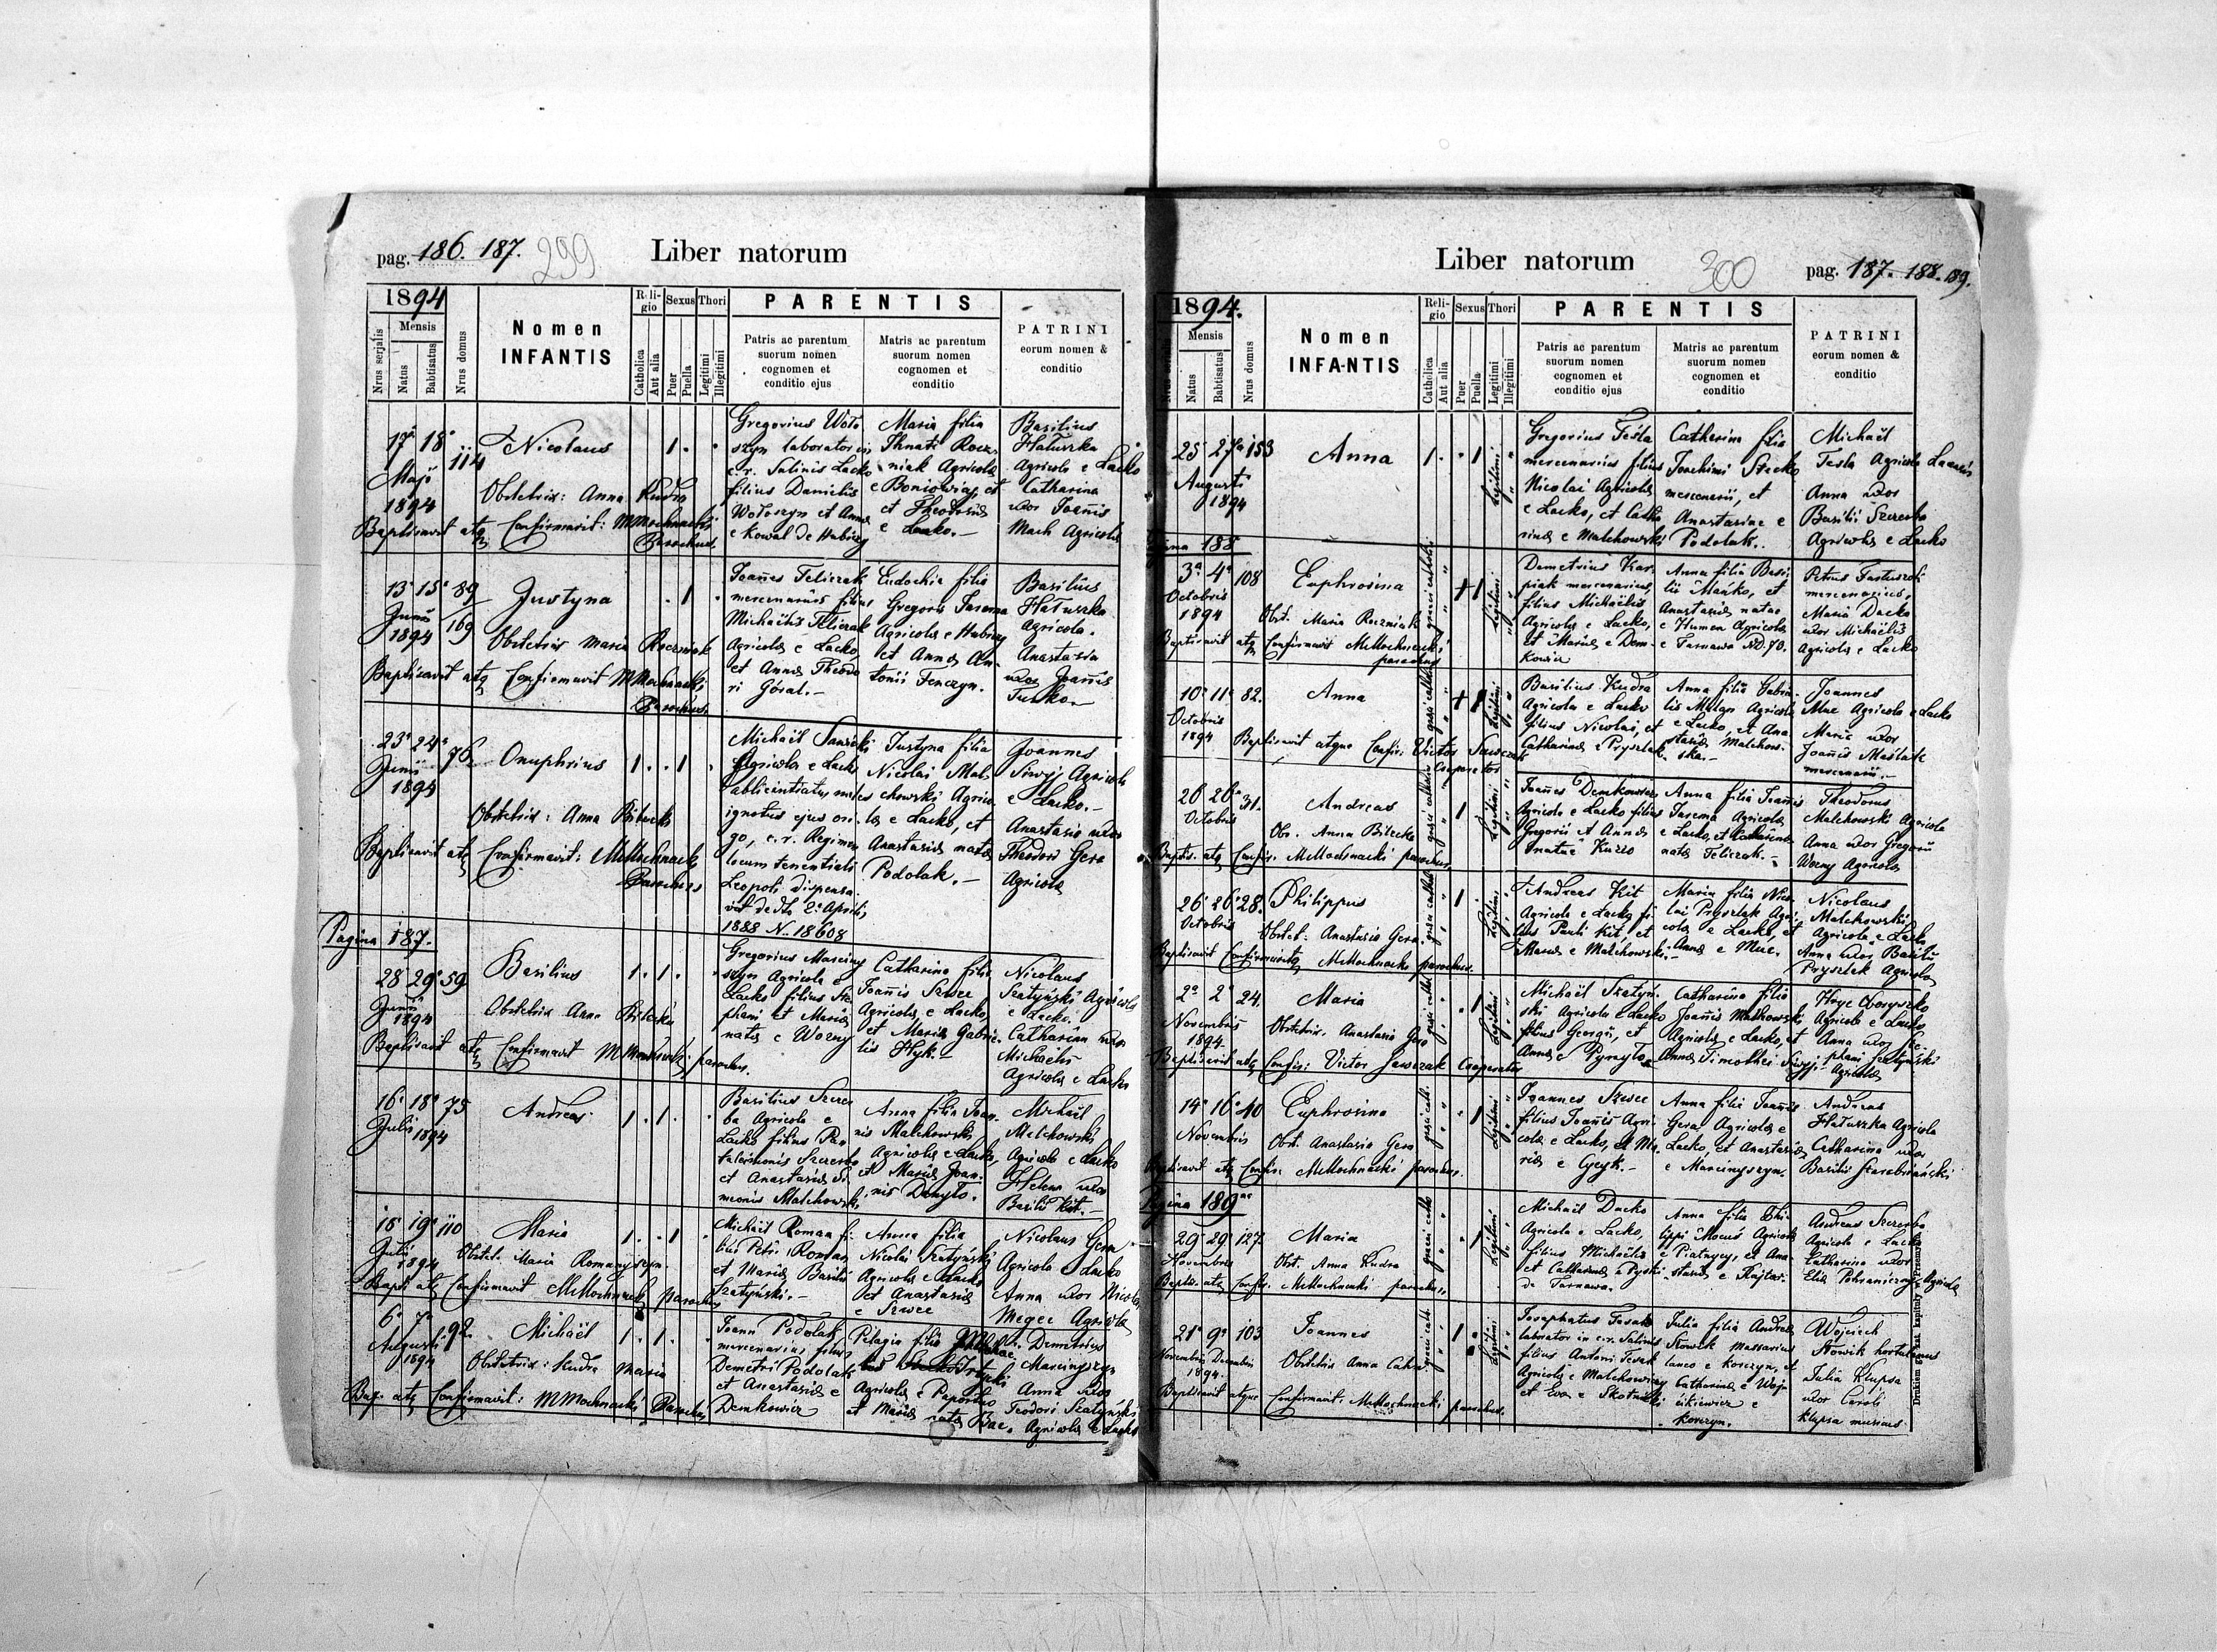 pag. 186. 187. 299 Liber natorum
1894
Nrus serjalis
Mensis
Natus
Babtisatus
Nrus domus
Nomen
INFANTIS
Religio
Catholica
Aut alia
Sexus
Puer
Puella
Thori
Legitimi
Illegitimi
PARENTIS
Patris ac parentum
suorum nomen
cognomen et
conditio ejus
Matris ac parentum
suorum nomen
cognomen et
conditio
PATRINI
eorum nomen &
conditio
17 18 114
Maji
1894
Nicolaus
Obstetrix: Anna Kudra
Baptisavit atq Confirmavit: MMochnacki
Parochus
Gregorius Woło
szyn laborator in
c. r. Salinis Lacko
filius Danielis
Wołoszyn et Anna
e Kowal de Hubicy
Maria filia
Ihnati Rocz
niak Agricola
e Boniowice, et
et Theodosia
e Lacko.-
Basilius
Hałuszka
Agricola e Lacko
Catharina
uxor Joannis
Mach Agricola
13 15 89
Junii 169
1894
Justyna
Obstetrix Maria Roczniak
Baptisavit atq Confirmavit MMochnacki
Parochus
Joannes Teliczak
mercenarius filius
Michaëlis Teliczak
Agricola e Lacko,
et Anna Theodo
ri Góral.-
Eudochia filia
Gregorii Jarema
Agricola e Hubicy
et Anna An
tonii Fenczyn.
Basilius
Hałuszka
Agricola.
Anastasia
uxor Joannis
23 24 76
Junii
1894
Onuphrius
Obstetrix: Anna Bilecka
Baptisavit atq Confirmavit: MMochnacki
Parochus
Michaël Sawicki
Agricola e Lacko
ignotus ejus ori
go, c. r. Regimen
locum tenentiali
Leopoli dispensa
vit de dto 2 Aprilis
1888 N. 18608
Justyna filia
Nicolai Mal
chowski Agrico
la e Lacko, et
Anastasia nata
Podolak.-
Joannes
Siwyj Agricola
e Lacko.-
Anastasia uxor
Theodori Gera
Agricola
Pagina 187.
28 29 59
Junii
1894
Basilius
Obstetrix Anna Bilecka
Baptisavit atq Confirmavit MMochnacki parochus.
Gregorius Marciny
szyn Agricola e
Lacko filius Ste
phani et Maria
nata e Wozny
Catharina filia
Joannis Szwec
Agricola, e Lacko,
et Maria Gabrie
lis Hyk.-
Nicolaus
Szatyński Agricola
e Lacko.
Catharina uxor
Michaelis
Agricola e Lacko
16 18 75
Julii 1894
Andreas
Basilius Szczer
ba Agricola e
Lacko filius Pan
taleimonis Szczerba
et Anastasia Si
meonis Malchowski
Anna filia Joan
nis Malchowski
Agricola e Lacko,
et Maria Joan
nis Danyło.
Michaël
Malchowski
Agricola e Lacko
Helena uxor
Basilii Kit.-
18 19 110
Julii
1894
Maria
Obstet. Maria Romanyszyn
Bapt. atq Confirmavit MMochnacki parochus
Michaël Roman fi
lius Petri Roman
et Maria Basilii
Szatyński.-
Anna filia
Nicolai Szatyński
Agricola e Lacko
et Anastasia
e Szwec
Nicolaus Gera
Agricola e Lacko
Anna uxor Nicolai
Megec Agricola
6 7 92
Augusti
1894
Michaël
Obstetrix: Kudra Maria
Bap. atq Confirmavit: MMochnacki Parochus
Joann Podolak
mercenarius filius
Demetri Podolak
et Anastasia e
Demkowicz
Pelagia filia
Agricola e Paportno
et Maria nata Bac.
Demetrius
Marcinyszyn
Anna uxor
Teodori Szatyński
Agricola e Lacko
Liber natorum 300 pag. 187. 188. 189.
1894.
Mensis
Natus
Babtisatus
Nrus domus
Nomen
INFANTIS
Religio
Catholica
Aut alia
Sexus
Puer
Puella
Thori
Legitimi
Illegitimi
PARENTIS
Patris ac parentum
suorum nomen
cognomen et
conditio ejus
Matris ac parentum
suorum nomen
cognomen et
conditio
PATRINI
eorum nomen &
conditio
25 27 153
Augusti
1894
Anna
Gregorius Tesla
mercenarius filius
Nicolai Agricola
e Lacko, et Catha
rina e Malchowski
Catharina filia
Joachimi Stecko
mercenarii, et
Anastasiae e
Podolak.
Michaël
Tesla Agricola
Anna uxor
Basilii Szczerba
Agricola e Lacko
Pagina 188
3 4 108
Octobris
1894
Euphrosina
Obst. Maria Roczniak
Baptisavit atq Confirmavit MMochnacki
parochus
Demetrius Kar
piak mercenarius,
filius Michaëlis
Agricola e Lacko,
et Maria e Dem
kowicz
Anna filia Basi
lii Mańko, et
Anastasia natae
e Humen Agricola
e Tarnawa ND. 70.
Petrus
mercenarius,
Maria Dacko
uxor Michaëlis
Agricola e Lacko
10 11 82.
Octobris
1894
Anna
Baptisavit atque Confir: Victor Sawczak
Cooperator
Basilius Kudra
Agricola e Lacko
filius Nicolai, et
Catharina e Pryszlak
Anna filia Gabrie
lis Melyn Agricola
e Lacko, et Ana
stasia Malchow
ska.-
Joannes
Mac Agricola e Lacko
Maria uxor
Joannis Maślak
mercenarii.-
26 26 31.
Octobris
Andreas
Obs. Anna Bilecka
Baptis. atq Confir. MMochnacki parochus
Joannes Demkowicz
Agricola e Lacko filius
Gregorii et Anna
natae Kuzio
Anna filia Joannis
Jarema Agricola
e Lacko, et Catharina
nata Teliczak.-
Theodorus
Malchowski Agricola
Anna uxor Gregorii
Wozny Agricola
26 26 28.
Octobris
Philippus
Obstet: Anastasia Gera.
Baptisavit Confirmavitq MMochnacki parochus.
Andreas Kit
Agricola e Lacko fi
lius Pauli Kit, et
Maria e Malchowski.-
Maria filia Nico
lai Pryszlak Agri
cola e Lacko, et
Anna e Mac.
Nicolaus
Malchowski
Agricola e Lacko
Anna uxor Basilii
Pryszlak Agricola
2 2 24.
Novembris
1894.
Maria
Obstetrix. Anastasia Gera
Baptisavit atq Confir: Victor Sawczak Cooperator
Michaël Szatyń
ski Agricola e Lacko
filius Georgii, et
Anna e Pyrayło
Catharina filia
Joannis Malchowski
Agricola e Lacko, et
Anna Timothei Siwyj.
Agricola e Lacko
Anna uxor Ste
phani Szatyński
Agricola
14 16 40
Novembris
Euphrosina
Obst. Anastasia Gera
Baptisavit atq Confir. MMochnacki parochus.
Joannes Szwec
filius Joannis Agri
cola e Lacko, et Ma
ria e Gryk.-
Anna filia Joannis
Gera Agricola e
Lacko, et Anastasia
e Marcinyszyn.
Andreas
Hałuszka Agricola
Catharina uxor
Basilii
Pagina 189
29 29 127
Novembris
Maria
Obst. Anna Kudra
Baptis. atq Confir. MMochnacki parochus.
Michaël Dacko
Agricola e Lacko,
filius Michaëlis
et Catharina e
de Tarnawa.
Anna filia Phi
lippi Mocus Agricola
e Piatnycy, et Ana
stasia e Kajdar.
Andreas Szczerba
Agricola e Lacko
Catharina uxor
Elia Pohranicznyj Agricola
21 9 103
Novembris Decembris
1894.
Joannes
Obstetrix Anna
Baptisavit atque Confirmavit. MMochnacki parochus.
Josaphatus Fesak
laborator in c. r. Salinis
filius Antoni Fesak
Agricola e Malchowicy
et Eva e Skotnicki
Julia filia Andrea
Słowik
e Korczyn, et
Catharina e Woj
cikiewicz e
Korczyn.
Wojciech
Słowik hortulanus
Julia Klupsa
uxor Caroli
Klupsa murarius